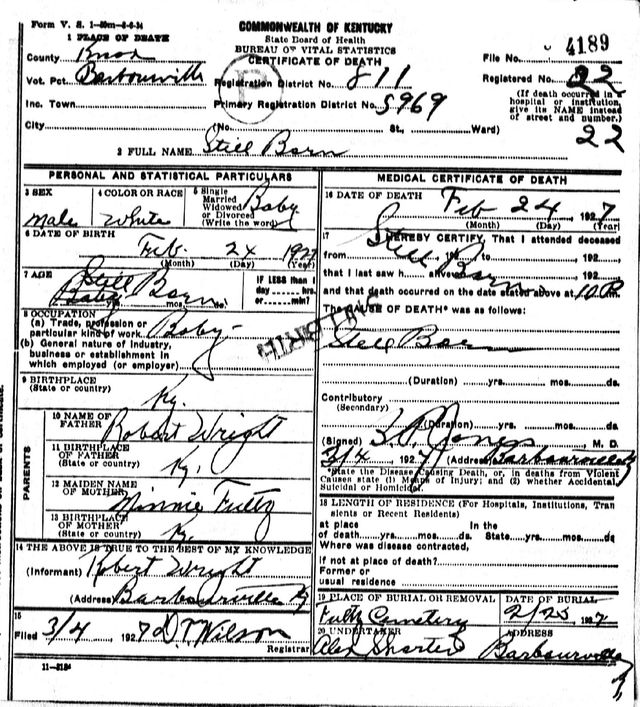 Form V. S. 1-50m-8-6-24
COMMONWEALTH OF KENTUCKY
State Board of Health
BUREAU OF VITAL STATISTICS
CERTIFICATE OF DEATH
File No. 4189
1 PLACE OF DEATH
County Knox
Vot. Pct. Barbourville
Registration District No. 811
Registered No. 22
Inc. Town
Primary Registration District No. 5969
(If death occurred in a hospital or institution, give its NAME instead of street and number.)
City (No. St., Ward) 22
2 FULL NAME Still Born
PERSONAL AND STATISTICAL PARTICULARS
3 SEX male
4 COLOR OR RACE White
5 Single Married Widowed or Divorced (Write the word) Baby
6 DATE OF BIRTH Feb. 24 1927
(Month) (Day) (Year)
7 AGE Still Born
Baby mos. ds.
IF LESS than 1 day hrs. or min.
8 OCCUPATION
(a) Trade, profession or particular kind of work Baby
(b) General nature of industry, business or establishment in which employed (or employer)
9 BIRTHPLACE
(State or country) Ky.
PARENTS
10 NAME OF FATHER Robert Wright
11 BIRTHPLACE OF FATHER
(State or country) Ky.
12 MAIDEN NAME OF MOTHER Minnie Fultz
13 BIRTHPLACE OF MOTHER
(State or country) Ky.
14 THE ABOVE IS TRUE TO THE BEST OF MY KNOWLEDGE
(Informant) Robert Wright
(Address) Barbourville Ky
15
Filed 3/4, 1927 D. T. Wilson
Registrar
11-3184
MEDICAL CERTIFICATE OF DEATH
16 DATE OF DEATH Feb 24, 1927
(Month) (Day) (Year)
17 I HEREBY CERTIFY, That I attended deceased
from, 192 to, 192
Still Born
that I last saw h alive, 192
and that death occurred on the date stated above at 10 P
The CAUSE OF DEATH* was as follows:
STILLBIRTH
Still Born
(Duration) yrs. mos. ds.
Contributory
(Secondary)
(Duration) yrs. mos. ds
(Signed) Jones, M. D.
3/4 1927 (Address) Barbourville Ky
*State the Disease Causing Death, or, in deaths from Violent Causes state (1) Means of Injury; and (2) whether Accidental, Suicidal or Homicidal.
18 LENGTH OF RESIDENCE (For Hospitals, Institutions, Transients or Recent Residents)
at place In the
of death yrs. mos. ds. State yrs. mos. ds
Where was disease contracted,
if not at place of death?
Former or
usual residence
19 PLACE OF BURIAL OR REMOVAL
DATE OF BURIAL
Fultz Cemetery 2/25 1927
20 UNDERTAKER
ADDRESS
Alex Barbourville Ky